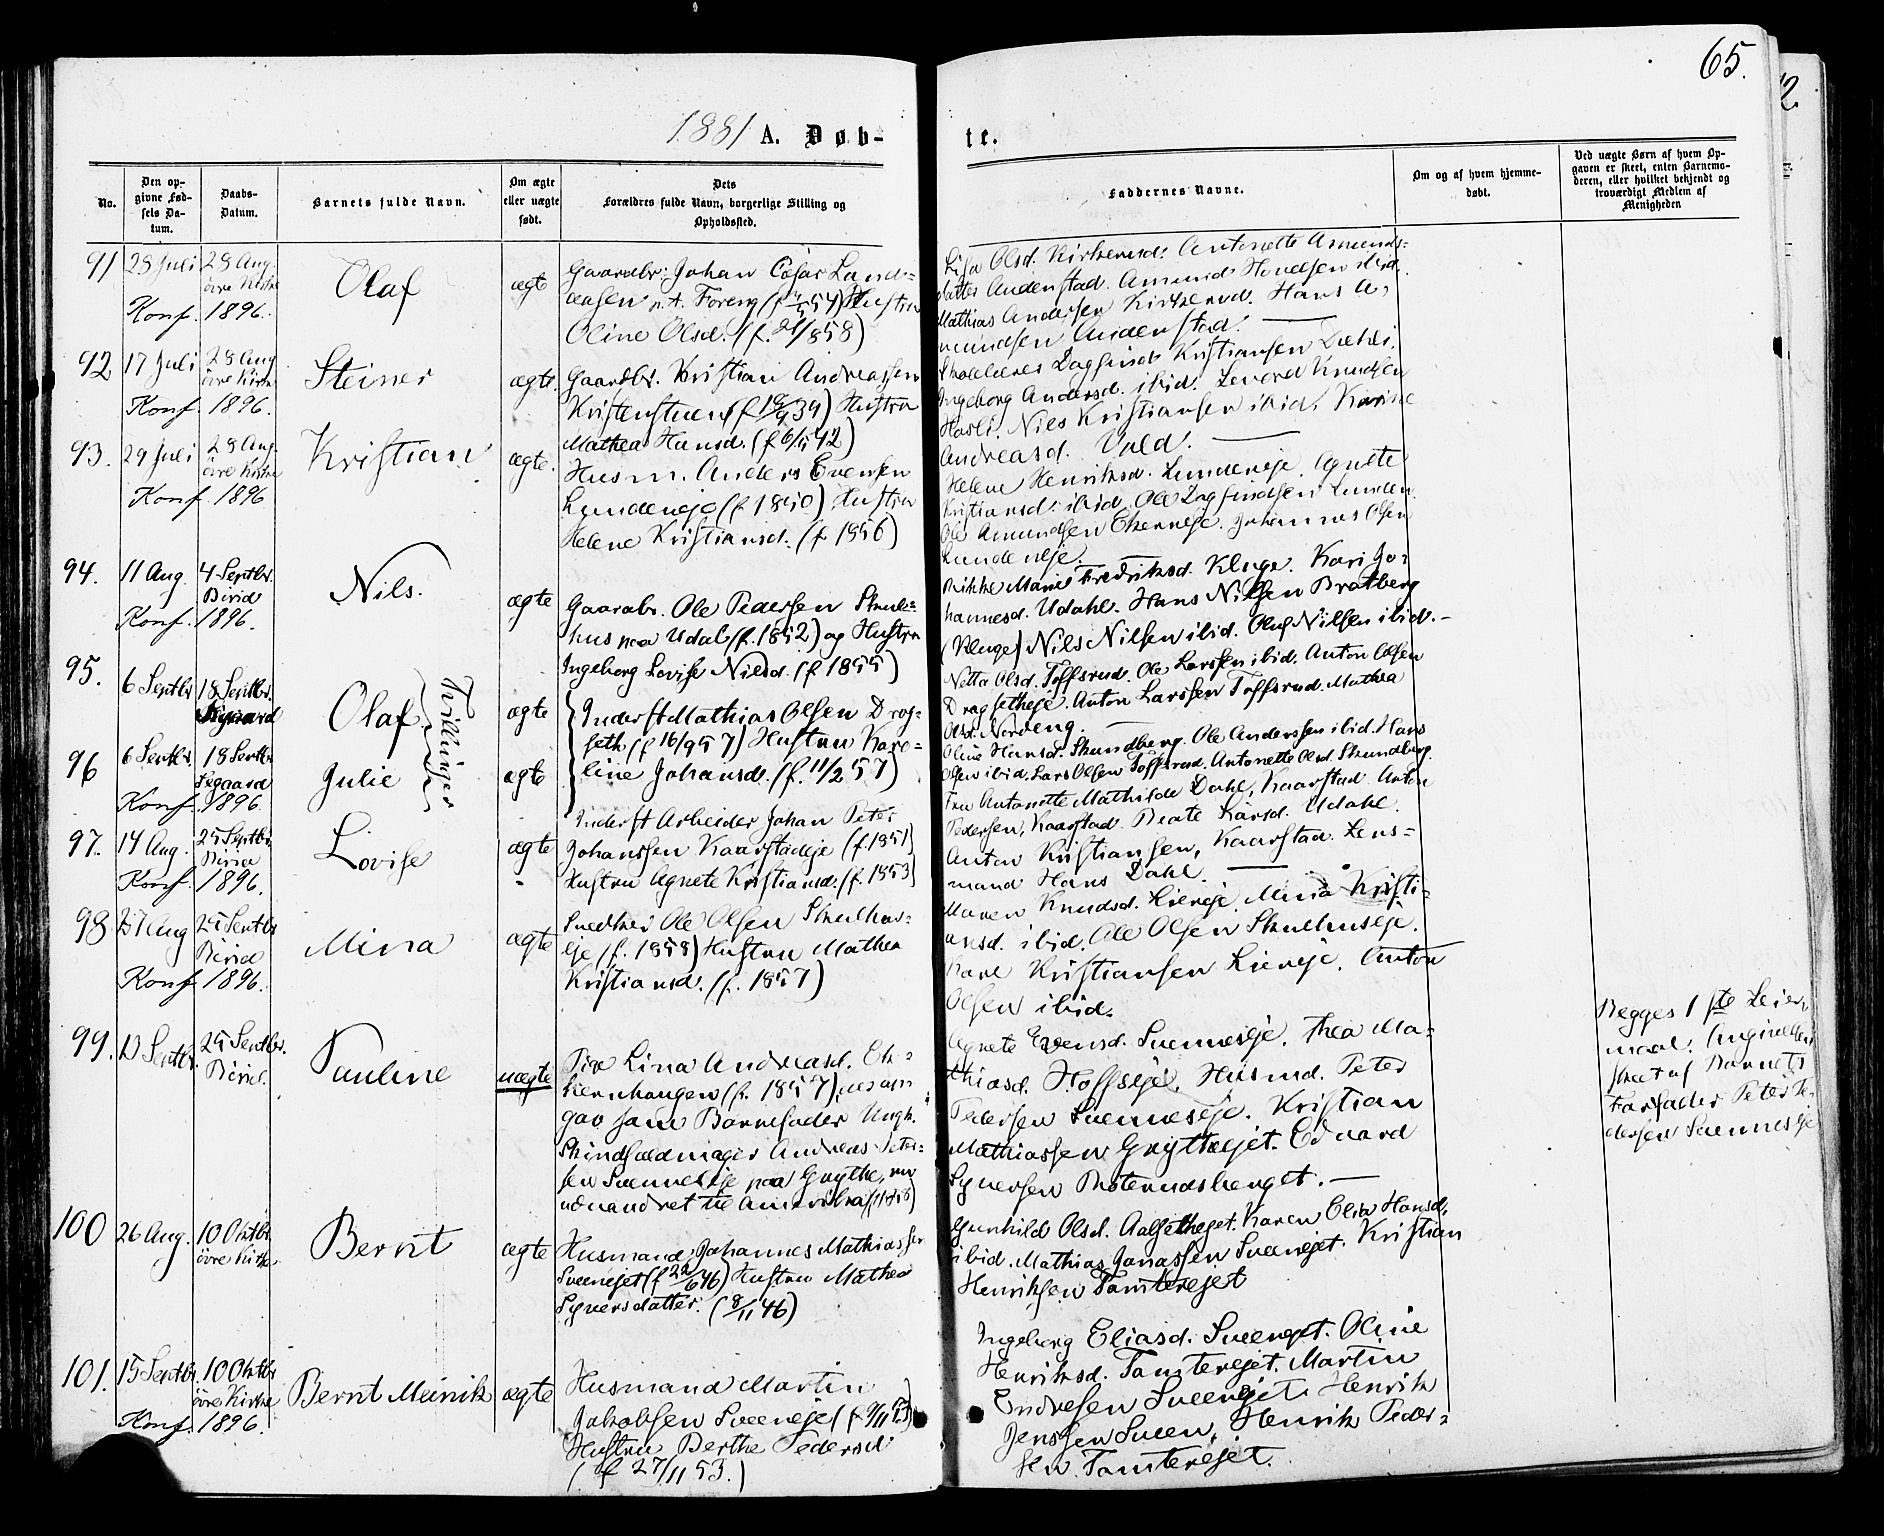 65.
1881 A. Døb-
te.
No.
Den op-
givne Fød-
sels Da-
tum.
Daabs-
Datum.
Barnets fulde Navn.
Om ægte
eller uægte
født.
Dets
Forældres fulde Navn, borgerlige Stilling og
Opholdssted.
Faddernes Navne.
Om og af hvem hjemme-
døbt.
Ved uægte Børn af hvem Op-
gaven er skeet, enten Barnemo-
deren, eller hvilket bekjendt og
troværdigt Medlem af
Menigheden
91 28 Juli 28 Aug.
övre Kirke
Konf. 1896.
Olaf
ægte
Gaardbr. Johan
Oline Olsd.
Lisa Olsd. Kirkerud. Antonette Amunds=
datter Audenstad. Amund ibid.
Mathias Andersen Kirkerud. Hans A=
mundsen Audenstad.
92 17 Juli 28 Aug
övre Kirke
Konf. 1896.
Steiner
ægte.
Gaardbr. Kristian Andreassen
Hustru
Mathea Hansd. (f 6/5 42)
Dagfind Kristiansen Dæhli.
Ingeborg Andersd. ibid. Knudsen
Nils Kristiansen ibid. Karine
Andreasd. Vold.
93. 29 Juli 28 Aug.
övre Kirke
Konf. 1896
Kristian
ægte.
Husm. Anders Evensen
Lundeneje (f 1850) Hustru
Helene Kristiansd. (f 1856)
Helene Henriksd. Lundeneje. Agnete
Kristiansd. ibid. Ole Dagfindsen Lunden.
Ole Amundsen Johannes Olsen
Lundeneje.
94. 11 Aug. 4 Septbr.
Birid
Konf. 1896.
Nils.
ægte
Gaardbr. Ole Pedersen Skule=
hus paa Udal (f. 1852) og Hustru
Ingeborg Lovise Nilsd. (f 1855)
Rikke Marie Fredriksd. Kluge. Kari Jo=
hannesd. Udahl. Hans Nilsen Bratberg
(Kluge) Nils Nilsen ibid. Oluf Nilsen ibid.
95.
6 Septbr 18 Septbr.
Olaf
Tvillinger
ægte
Inderst Mathias Olsen Drag=
seth (f 16/9 57) Hustru Kare=
line Johansd. (f. 11/2 57)
Netta Olsd. Toffsrud. Ole Larssen ibid. Anton Olsen
Dragsetheje. Anton Larssen Toffsrud. Mathea
Olsd. Nordeng.
96 6 Septbr. 18 Septbr.
Segaard
Konf. 1896.
Julie
ægte
Oline Hansd. Skundberg. Ole Anderssen ibid. Hans
Olsen ibid. Lars Olsen Toffsrud. Antonette Olsd. Skundberg.
97. 14 Aug. 25 Septbr.
Birid
Konf. 1896.
Lovise
ægte
Inderst Arbeider Johan Peter
Johanssen Kaarstadeje (f. 1851)
Hustru Agnete Kristiansd. (f. 1853)
Fru Antonette Mathilde Dahl, Kaarstad. Anton
Pedersen, Kaarstad. Beate Larsd. Udahl.
Anton Kristiansen, Kaarstad. Lens=
mand Hans Dahl.
98 27 Aug 25 Septbr
Birid
Konf 1896.
Mina
ægte
Snedker Ole Olsen Skulhus=
eje (f. 1858) Hustru Mathea
Kristiansd. (f. 1857)
Maren Knudsd. Lieneje. Mina Kristi=
ansd. ibid. Ole Olsen Skulhuseje.
Karl Kristiansen Lieneje. Anton
Olsen ibid.
99. 13 Septbr. 25 Septbr.
Birid.
Pauline
uægte
Pige Lina Andreasd. Ek=
kernhaugen (f. 1857), som
gav som Barnefader Ungk.
Skindfeldmager Andreas Peter=
sen Svenneseje paa Grythe, nu
udvandret til Amerika
Agnete Evensd. Svenneseje. Thea Ma=
thiasd. Hoffseje. Husmd. Peter
Pedersen Svenneseje. Kristian
Mathiassen Grytteejet. Edvard
Syversen
Begges 1ste Leier=
maal. Angivelsen
skeet af Barnets
Farfader Peter Pe=
dersen Svenneseje
100 26 Aug. 10 Oktbr.
övre Kirke
Bernt
ægte
Husmand Johannes Mathiassen
Sveenejet (f 22/6 46) Hustru Mathea
Syversdatter. (8/11 46)
Gunhild Olsd. Karen Elin Hansd.
ibid. Mathias Jonassen Sveenejet. Kristian
Henriksen Tømterejet
101. 15 Septbr. 10 Oktbr.
övre Kirke
Konf. 1896.
Bernt Meinik
ægte
Husmand Martin
Jakobsen Sveeneje
Hustru Berthe Pedersd.
(f 27/11 53.)
Ingeborg Eliasd. Sveenejet. Oline
Henriksd. Tømterejet. Martin
Endresen Sveenejet. Henrik
Jenssen Sveen, Henrik Peder=
sen Tømterejet.